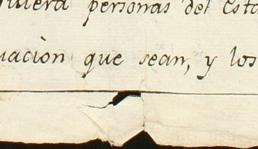 quiera personas del Esta
uaciòn que sean, y los